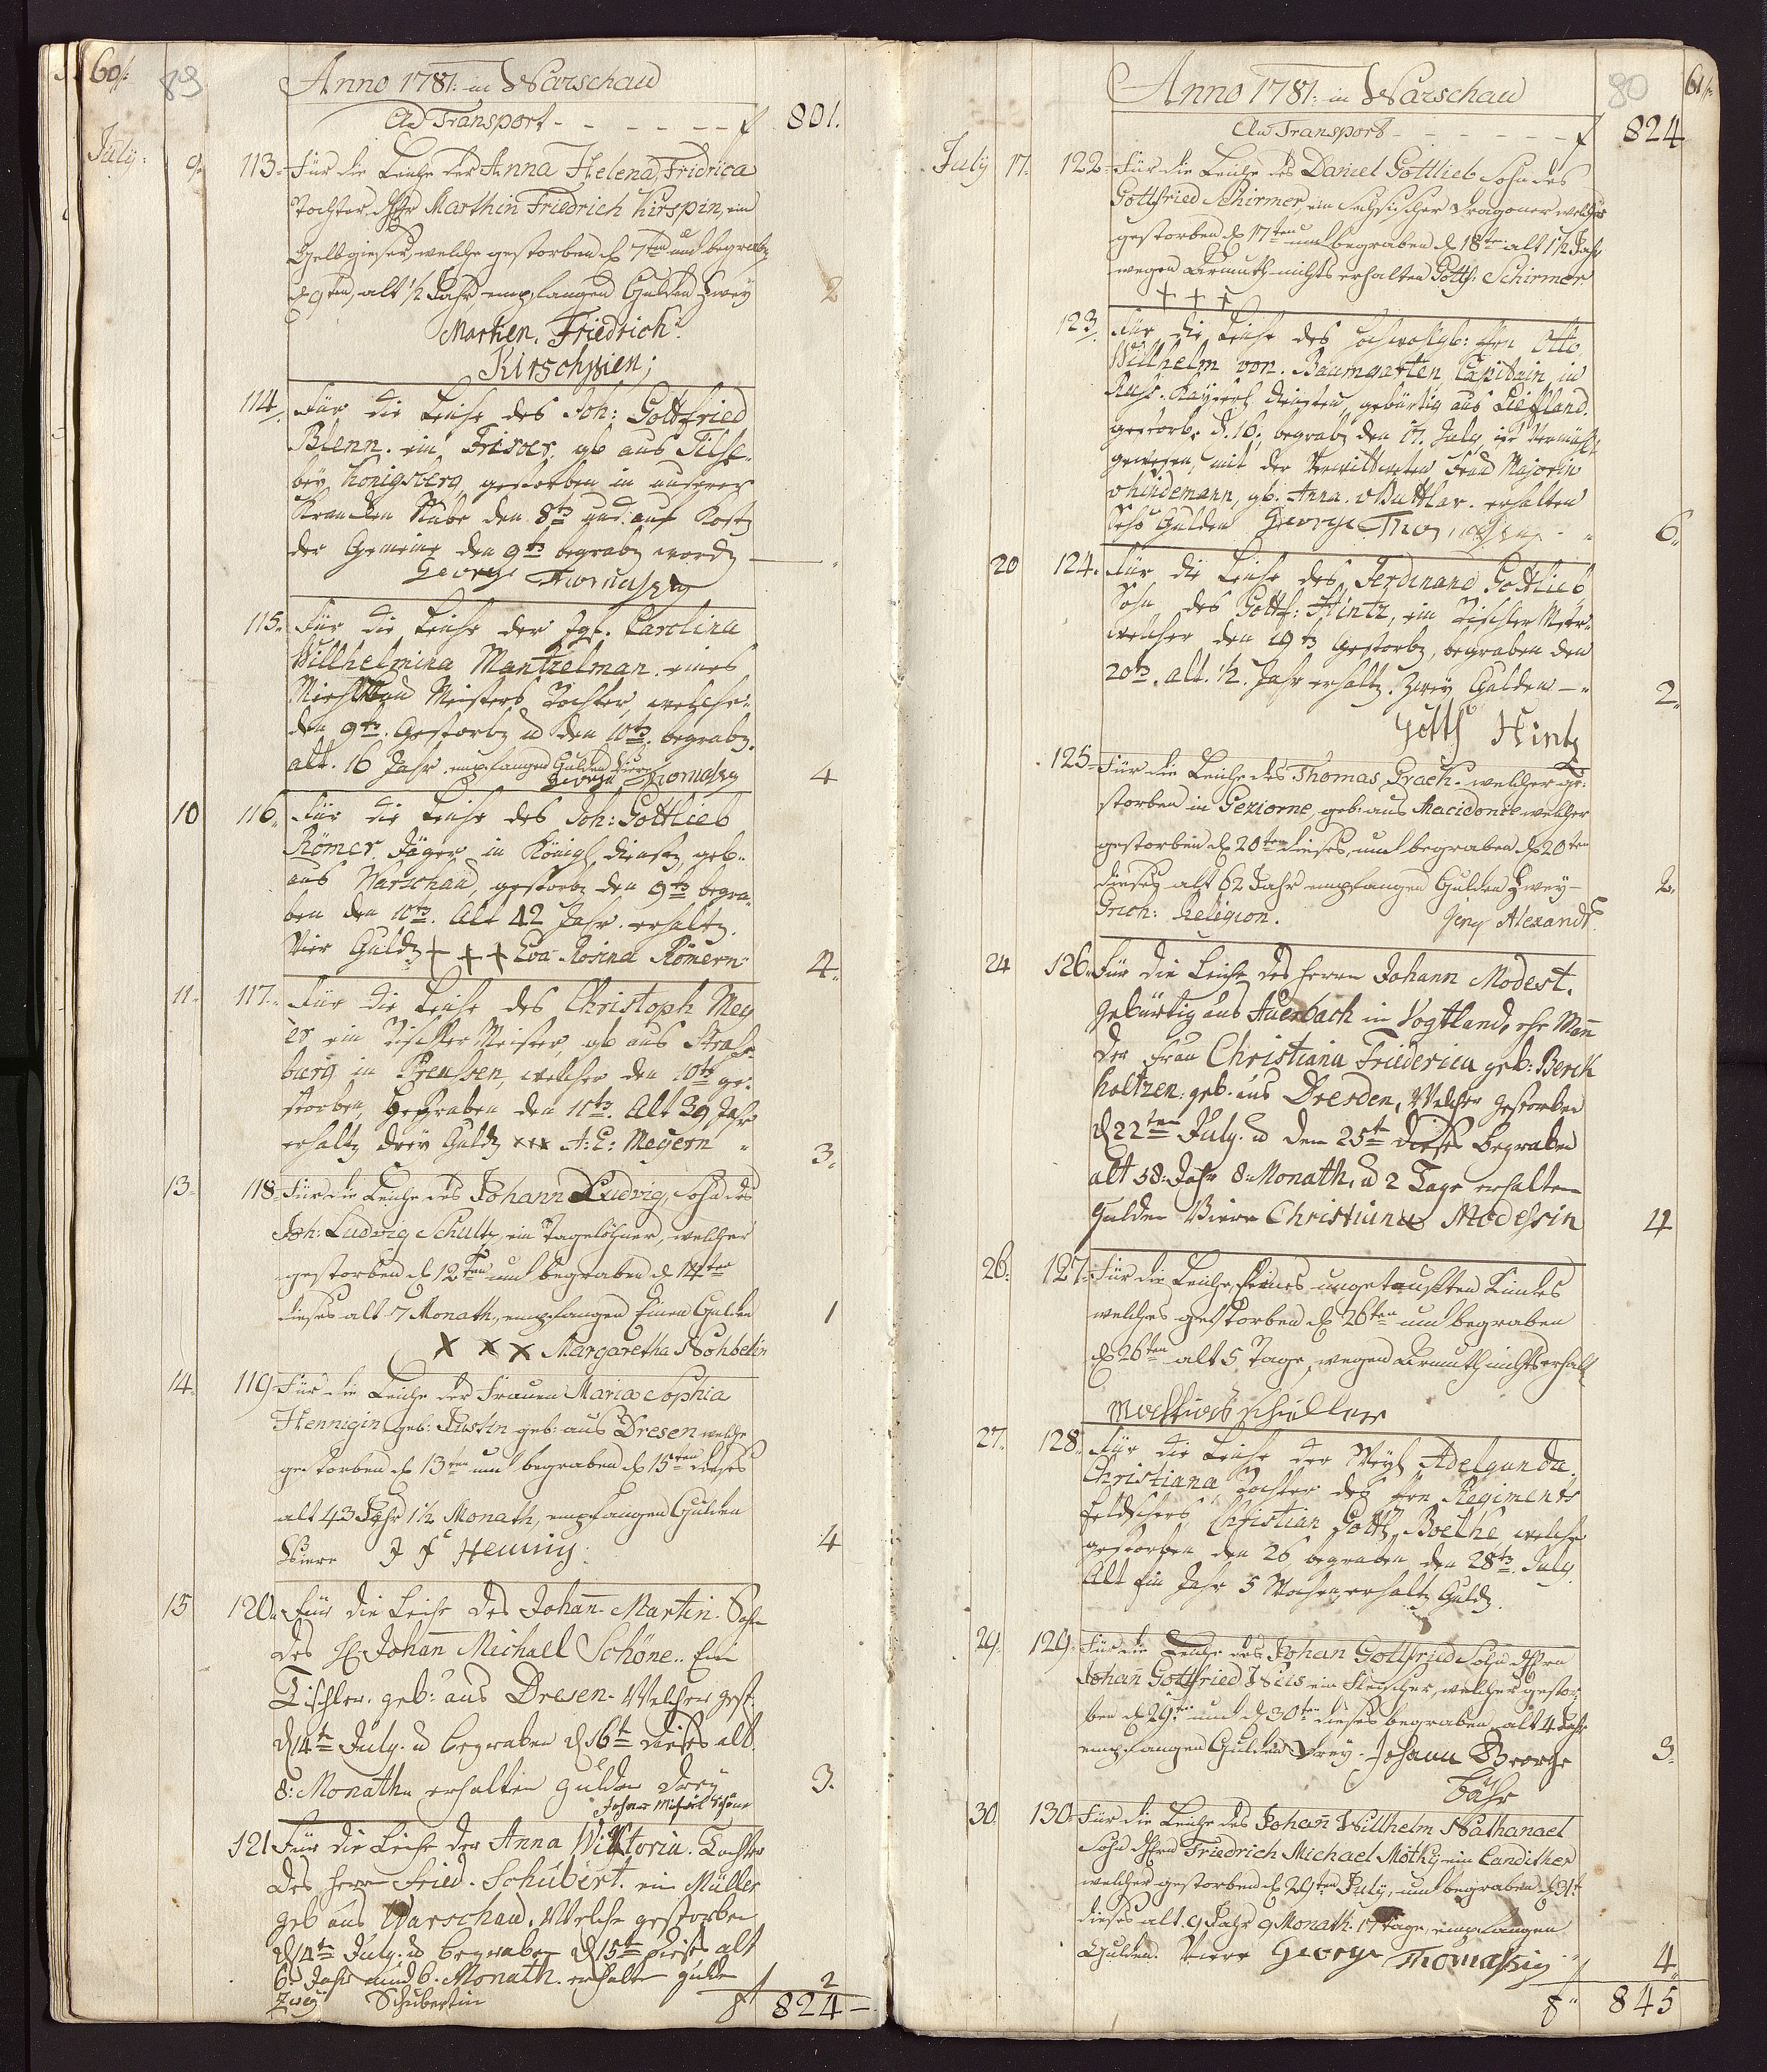 60
89
Anno 1781: in Warschau
Ad Transport - - - - - - - f 801.
July: 9. 113. Für die Leiche der Anna Helena Fridrica
Tochter Marthin Friedrich Kirspin, ein
Gelbgieser, welche gestorben d 7ten und begraben
d 9ten, alt 1/2 Jahr empfangen Gulden Zwey 2
Marten. Friedrich
114. Für die Leiche des Joh: Gottfried
Blenn. ein gb aus Tilse
bey Königsberg, gestorben in unserer
Krancken Stube den 8ts und auf Kost
der Gemeine den 9ts begrab word
George
115. Für die Leiche der Jgf. Carolina
Willhelmina Mantzelman. eines
Meisters Tochter, welche
den 9ts. Gestorb u den 10ts. begrab.
alt. 16 Jahr. empfangen Gulden Viere
George Thomaszig 4
10 116. Für die Leiche des Joh: Gottlieb
Römer. Jäger in Königl. dienst, geb.
aus Warschau, gestorb den 9ts begra
ben den 10ts. Alt 42 Jahr. erhalt.
Vier Guld + + + Eva Rosina Römern 4.
11. 117. Für die Leiche des Christoph Mey
er ein Tischler Meister, gb aus Stras
burg in Preussen, welcher den 10ts ge
storben, begraben den 11ts. Alt 39 Jahr
erhalt drey Guld xxx A: E: Meyern 3.
13. 118. Für die Leiche des Johann Ludvig, Sohn des
Joh: Ludvig Schultz, ein Tagelöhner, welcher
gestorben d 12ten und begraben d 14ten
dieses alt 7 Monath, empfangen Einen Gulden 1
X X X Margaretha
14. 119 Für die Leiche der Frauen Maria Sophia
Hennigin geb: Justin geb: aus Dresen welche
gestorben d 13ten und begraben d 15ten dieses
alt 43 Jahr 1 1/2 Monath, empfangen Gulden
Viere J F Henniy 4
15 120. Für die Leiche des Johann Martin. Sohn
des H Johann Michael Schöne. Ein
Tischler. geb: aus Dresen. Welcher gest:
d 14te July. u begraben d 16te dieses alt
8: Monath erhalten gulden Drey 3.
Johan Michael Schöne
121 Für die Leiche der Anna Wiktoria. Tochter
des Herrn Fried. Schubert. ein Müller
geb aus Warschau. Welche gestorben
d 14te July. u begraben d 15te dieses alt
6. Jahr und 6. Monath. erhalten gulden
Zwey Schubertin 2
f 824 -
61
80
Anno 1781: in Warschau
Ad Transport - - - - - - - f 824
July 17. 122. Für die Leiche des Daniel Gottlieb Sohn des
Gottfried Schirmer, ein Sechsischer Dragoner welcher
gestorben d 17ten und begraben d 18te alt 1 1/2 Jahr
wegen Armuth nichts erhalten Gottf: Schirmer
+ + +
123. Für die Leiche des Hochwollgb: Hrn Otto
Willhelm von. Baumgarten Capitain in
Russ. Kayserl diensten, gebürtig aus Liefland.
gestorb. d. 16. begrab den 17. July ist Vermählt
gewesen, mit der Verwittweten Frau Majorin
gb. Anna. v Buttlar. erhalten
Sechs Gulden George 6.
20 124. Für die Leiche des Ferdinand Gottlieb
Sohn des Gottf: Hintz, ein Tischler Mstr.
welcher den 19ts gestorb, begraben den
20ts. alt. 1/2. Jahr erhalt. Zwey Gulden - 2.
Gottf Hintz
125. Für die Leiche des Thomas Grach. welcher ge
storben in Geziorne, geb: aus Macidonie welcher
gestorben d 20ten dieses, und begraben d 20ten
dieses alt 62 Jahr empfangen Gulden Zwey - 2.
Grich: Religion. Alexandr
24 126. Für die Leiche des Herrn Johann Modest.
Gebürtig aus Auerbach in Vogtland, ehe Mann
der Frau Christiana Friederica geb: Berck
holtzen. geb. aus Dresden, Welcher gestorben
d 22ten July. u dem 25te dieses begraben
alt 58. Jahr 8. Monath, u 2 Tage erhalten
Gulden Viere Christiana Modessin 4
26. 127. Für die Leiche eines ungetauften Kindes
welches gestorben d 26ten und begraben
d 26ten alt 5 Tage, wegen Armuth nichts erhalt
27. 128. Für die Leiche der Adelgunda
Christiana, Tochter des Hrn Regiments
Feldschers Christian Gottf. Boethe welche
gestorben den 26 begraben den 28ts. July.
Alt Ein Jahr 5 Wochen, erhalt Guld.
29. 129. Für die Leiche des Johan Gottfried Sohn
Johann Gottfried ein Fleischer, welcher gestor
ben d 29te und d 30ten dieses begraben alt 4 Jahr
empfangen Gulden Drey. Johann George 3.
Bähr
30. 130. Für die Leiche des Johann Willhelm Nathanael
Sohn Friedrich Michael Möthy ein Candither
welcher gestorben d 29ten July, und begraben d 31te
dieses alt 9 Jahr 9 Monath 17 Tage, empfangen
Gulden. Viere George Thomassig 4.
f 845